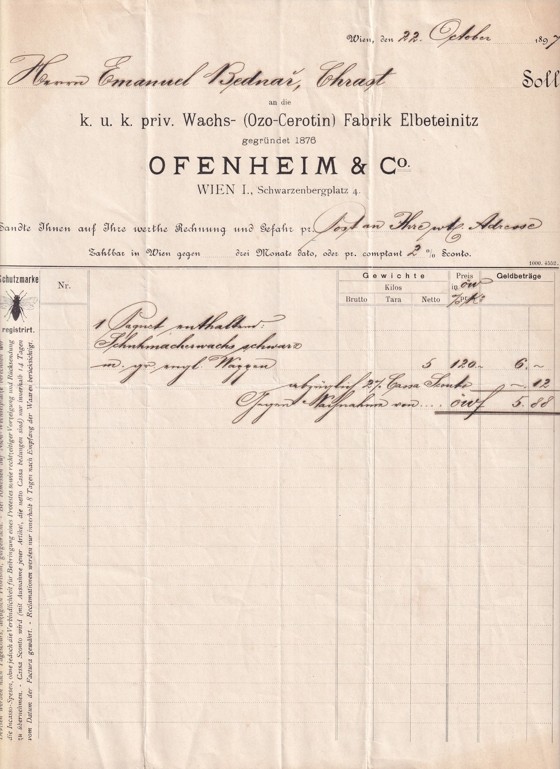 Wien, den 22. October 1897
Herrn Emanuel Bednař, Chrast
Soll
an die
k. u. k. priv. Wachs- (Ozo-Cerotin) Fabrik Elbeteinitz
gegründet 1876
OFENHEIM & Co.
WIEN I., Schwarzenbergplatz 4.
Sandte Ihnen auf Ihre werthe Rechnung und Gefahr pr. Post an Ihre wt. Adresse
Zahlbar in Wien gegen drei Monate dato, oder pr. comptant 2 % Sconto.
1000. 4552.
Schutzmarke
registrirt.
Nr.
Gewichte
Kilos
Brutto Tara Netto
Preis
in öw
Geldbeträge
1 Paquet enthaltend:
Schuhmacherwachs schwarz
m. gr. engl. Wappen 5 120.- 6.-
abzüglich 2% Cassa Sconto -.12
Gegen Nachnahme von.... öwf 5.88
die Incasso-Spesen, ohne jedoch die Verbindlichkeit für Beibringung eines Protestes sowie rechtzeitiger Vorzeigung und Rücksendung
zu übernehmen. - Cassa Sconto wird (mit Ausnahme jener Artikel, die netto Cassa bedungen sind) nur innerhalb 14 Tagen
vom Datum der Factura gewährt. - Reclamationen werden nur innerhalb 8 Tagen nach Empfang der Waaren berücksichtigt.